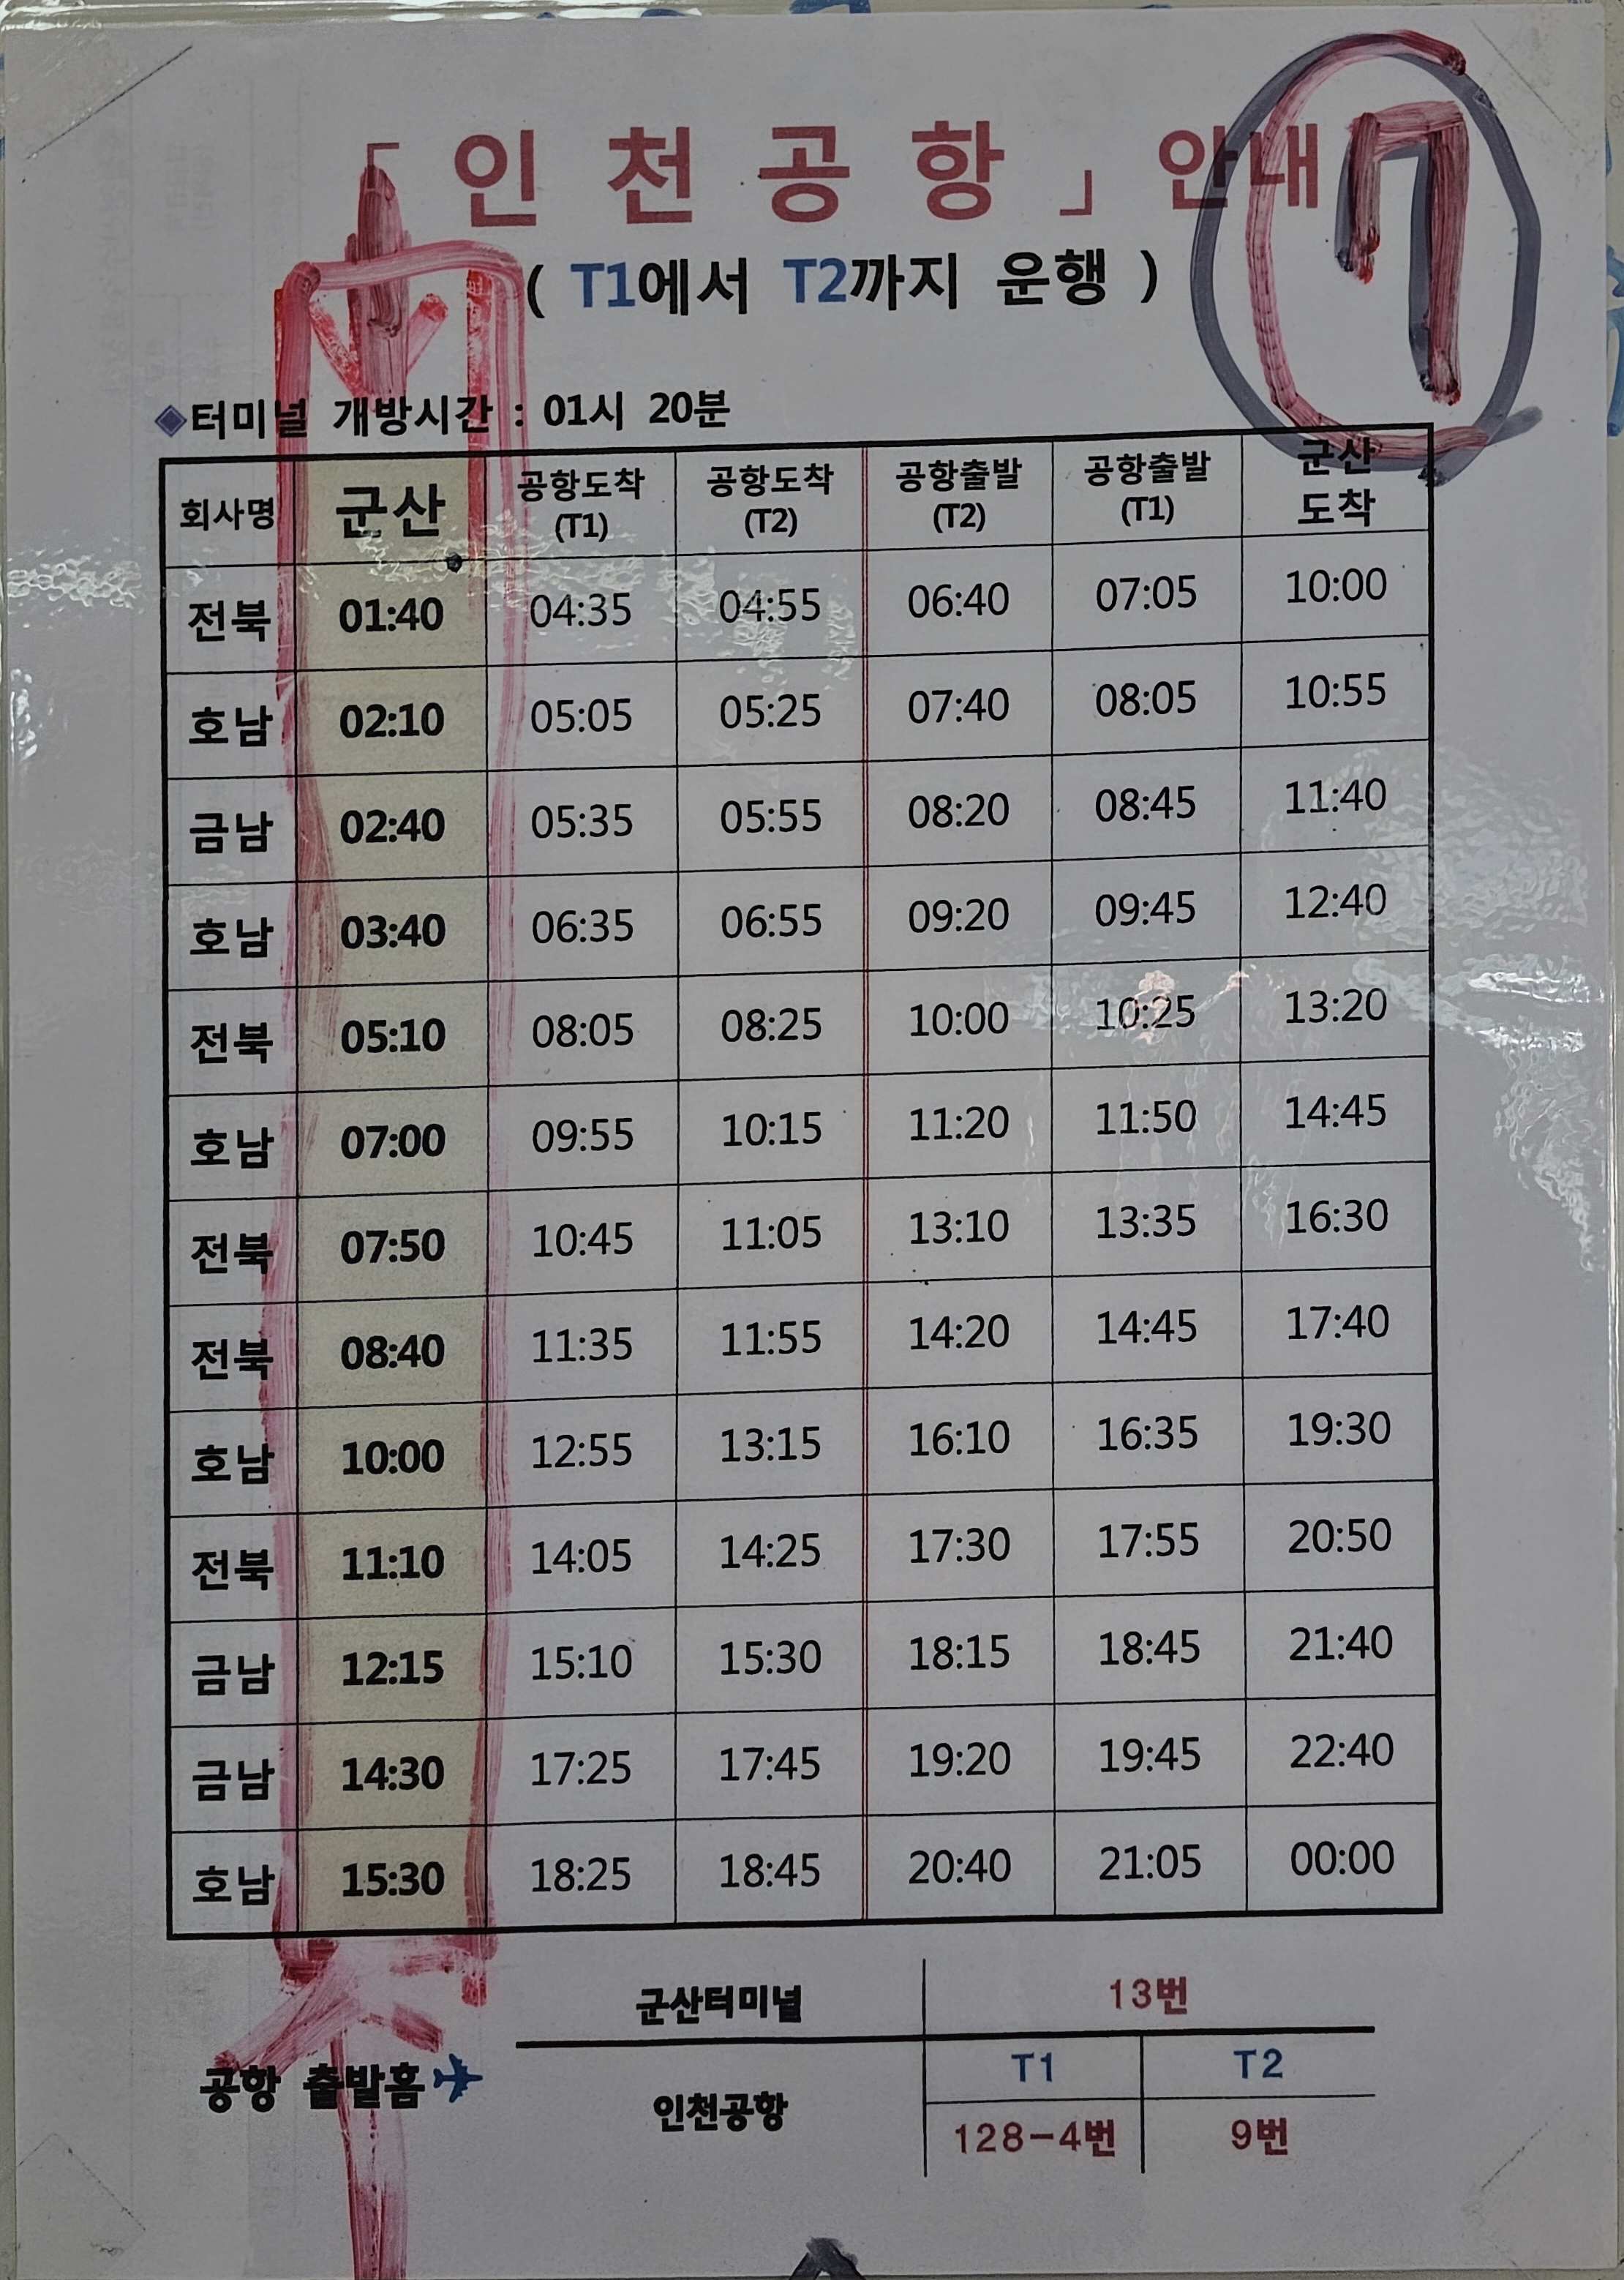 「인천공항」 안내
7
( T1에서 T2까지 운행 )
◆터미널 개방시간 : 01시 20분
회사명 군산 공항도착 (T1) 공항도착 (T2) 공항출발 (T2) 공항출발 (T1) 군산 도착
전북 01:40 04:35 04:55 06:40 07:05 10:00
호남 02:10 05:05 05:25 07:40 08:05 10:55
금남 02:40 05:35 05:55 08:20 08:45 11:40
호남 03:40 06:35 06:55 09:20 09:45 12:40
전북 05:10 08:05 08:25 10:00 10:25 13:20
호남 07:00 09:55 10:15 11:20 11:50 14:45
전북 07:50 10:45 11:05 13:10 13:35 16:30
전북 08:40 11:35 11:55 14:20 14:45 17:40
호남 10:00 12:55 13:15 16:10 16:35 19:30
전북 11:10 14:05 14:25 17:30 17:55 20:50
금남 12:15 15:10 15:30 18:15 18:45 21:40
금남 14:30 17:25 17:45 19:20 19:45 22:40
호남 15:30 18:25 18:45 20:40 21:05 00:00
군산터미널 13번
공항 출발홈
인천공항
T1 T2
128-4번 9번